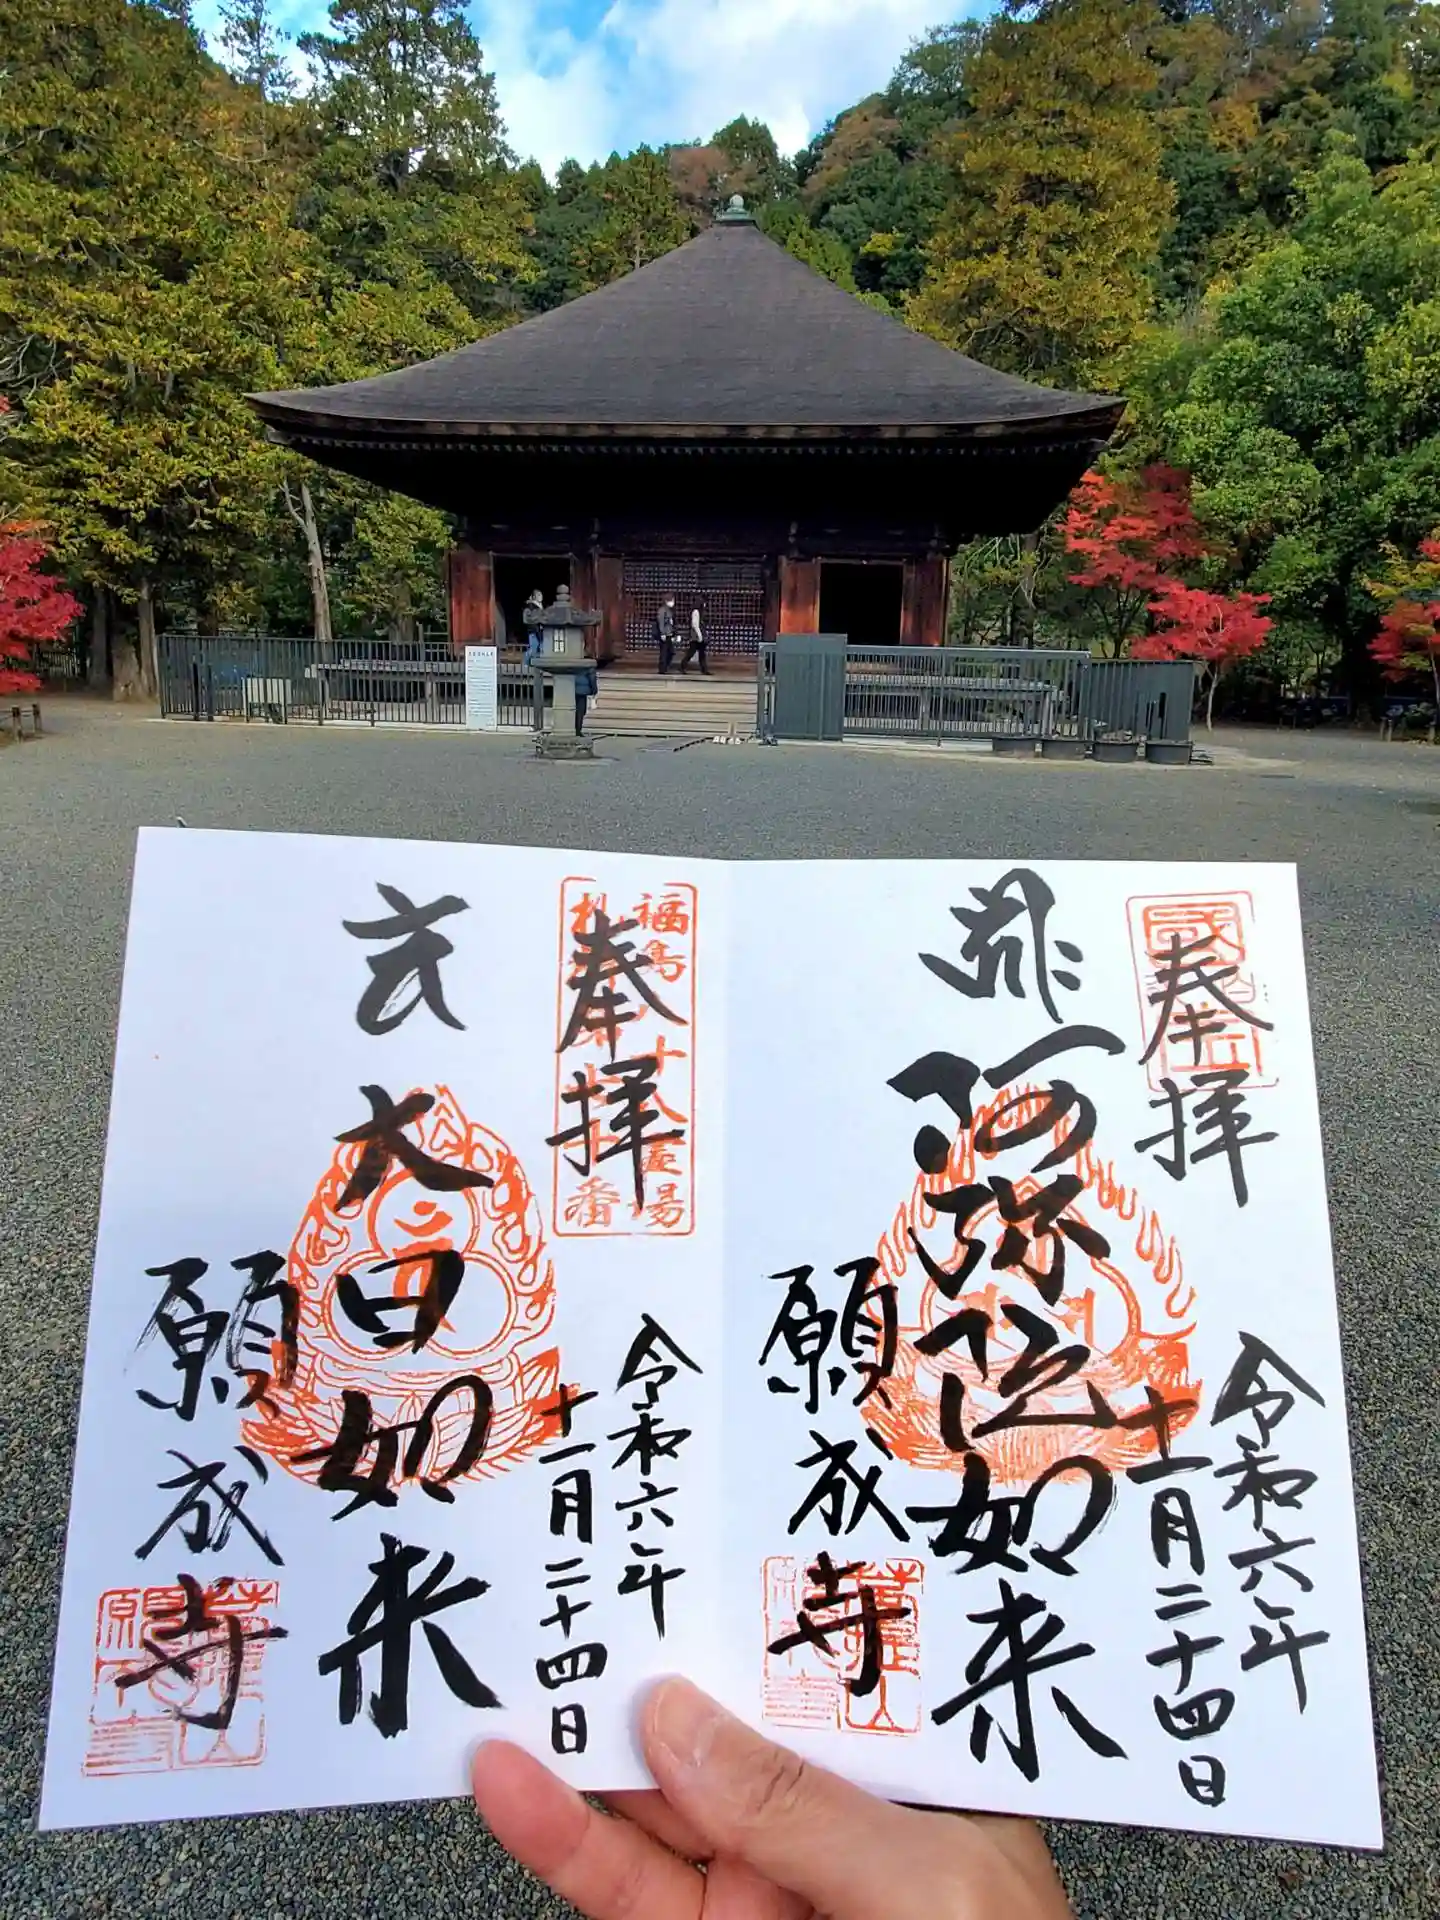 奉拝
阿弥陀如来
令和六年
十一月二十四日
願成寺
奉拝
福島八十八霊場
大日如来
令和六年
十一月二十四日
願成寺